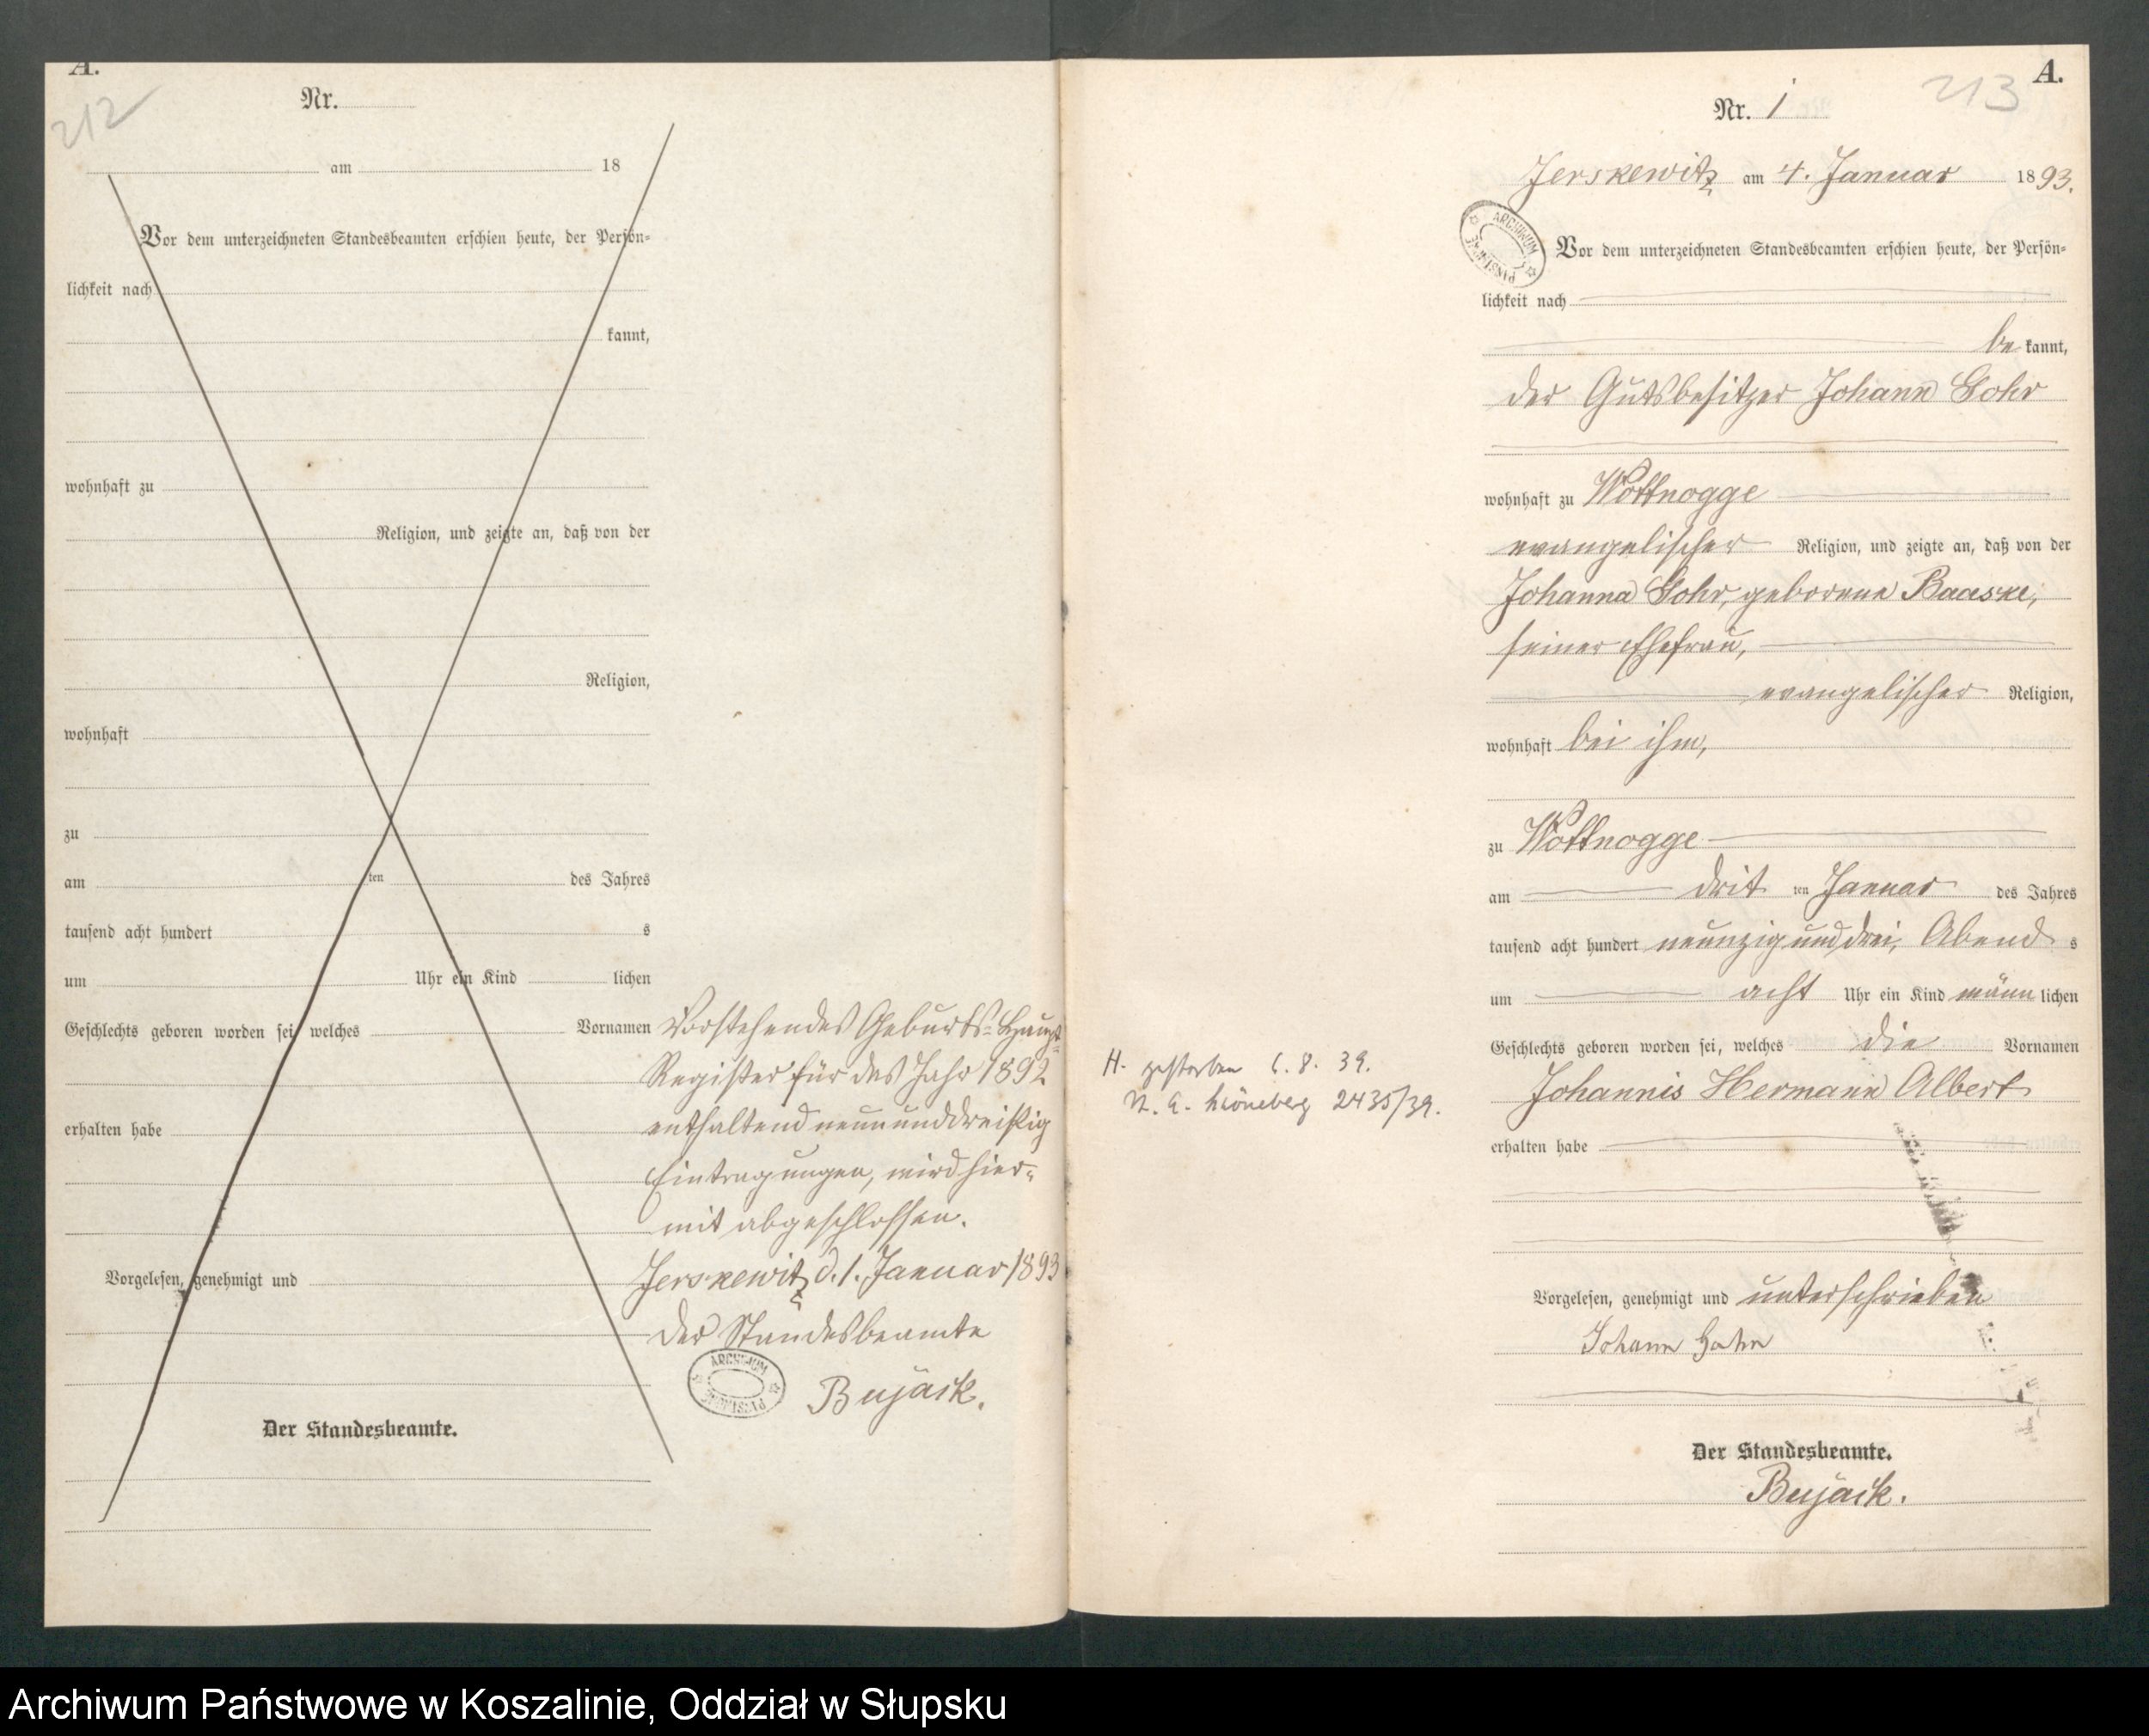 A.
212
Nr.
am 18
Vor dem unterzeichneten Standesbeamten erschien heute, der Persön=
lichkeit nach
kannt,
wohnhaft zu
Religion, und zeigte an, daß von der
Religion,
wohnhaft
zu
am ten des Jahres
tausend acht hundert s
um Uhr ein Kind lichen
Geschlechts geboren worden sei, welches Vornamen
erhalten habe
Vorgelesen, genehmigt und
Der Standesbeamte.
Vorstehendes Geburts=Haupt=
Register für das Jahr 1892
enthaltend neununddreißig
Eintragungen, wird hier=
mit abgeschlossen.
Jerskewitz, d. 1. Januar 1893
Der Standesbeamte
ARCHIWUM PAŃSTWOWE
Bujack.
A.
213
Nr. 1
Jerskewitz am 4. Januar 1893.
ARCHIWUM PAŃSTWOWE
Vor dem unterzeichneten Standesbeamten erschien heute, der Persön=
lichkeit nach
be kannt,
der Gutsbesitzer Johann
wohnhaft zu Wottnogge
evangelischer Religion, und zeigte an, daß von der
Johanna geborene Baaske,
seiner Ehefrau,
evangelischer Religion,
wohnhaft bei ihm,
zu Wottnogge
am dritten Januar des Jahres
tausend acht hundert neunzig und drei, Abends
um acht Uhr ein Kind männlichen
Geschlechts geboren worden sei, welches die Vornamen
Johannis Hermann Albert
erhalten habe
Vorgelesen, genehmigt und unterschrieben
Johann
Der Standesbeamte.
Bujack.
H. gestorben 6. 8. 39.
St. A. Schöneberg 2435/39.
Archiwum Państwowe w Koszalinie, Oddział w Słupsku